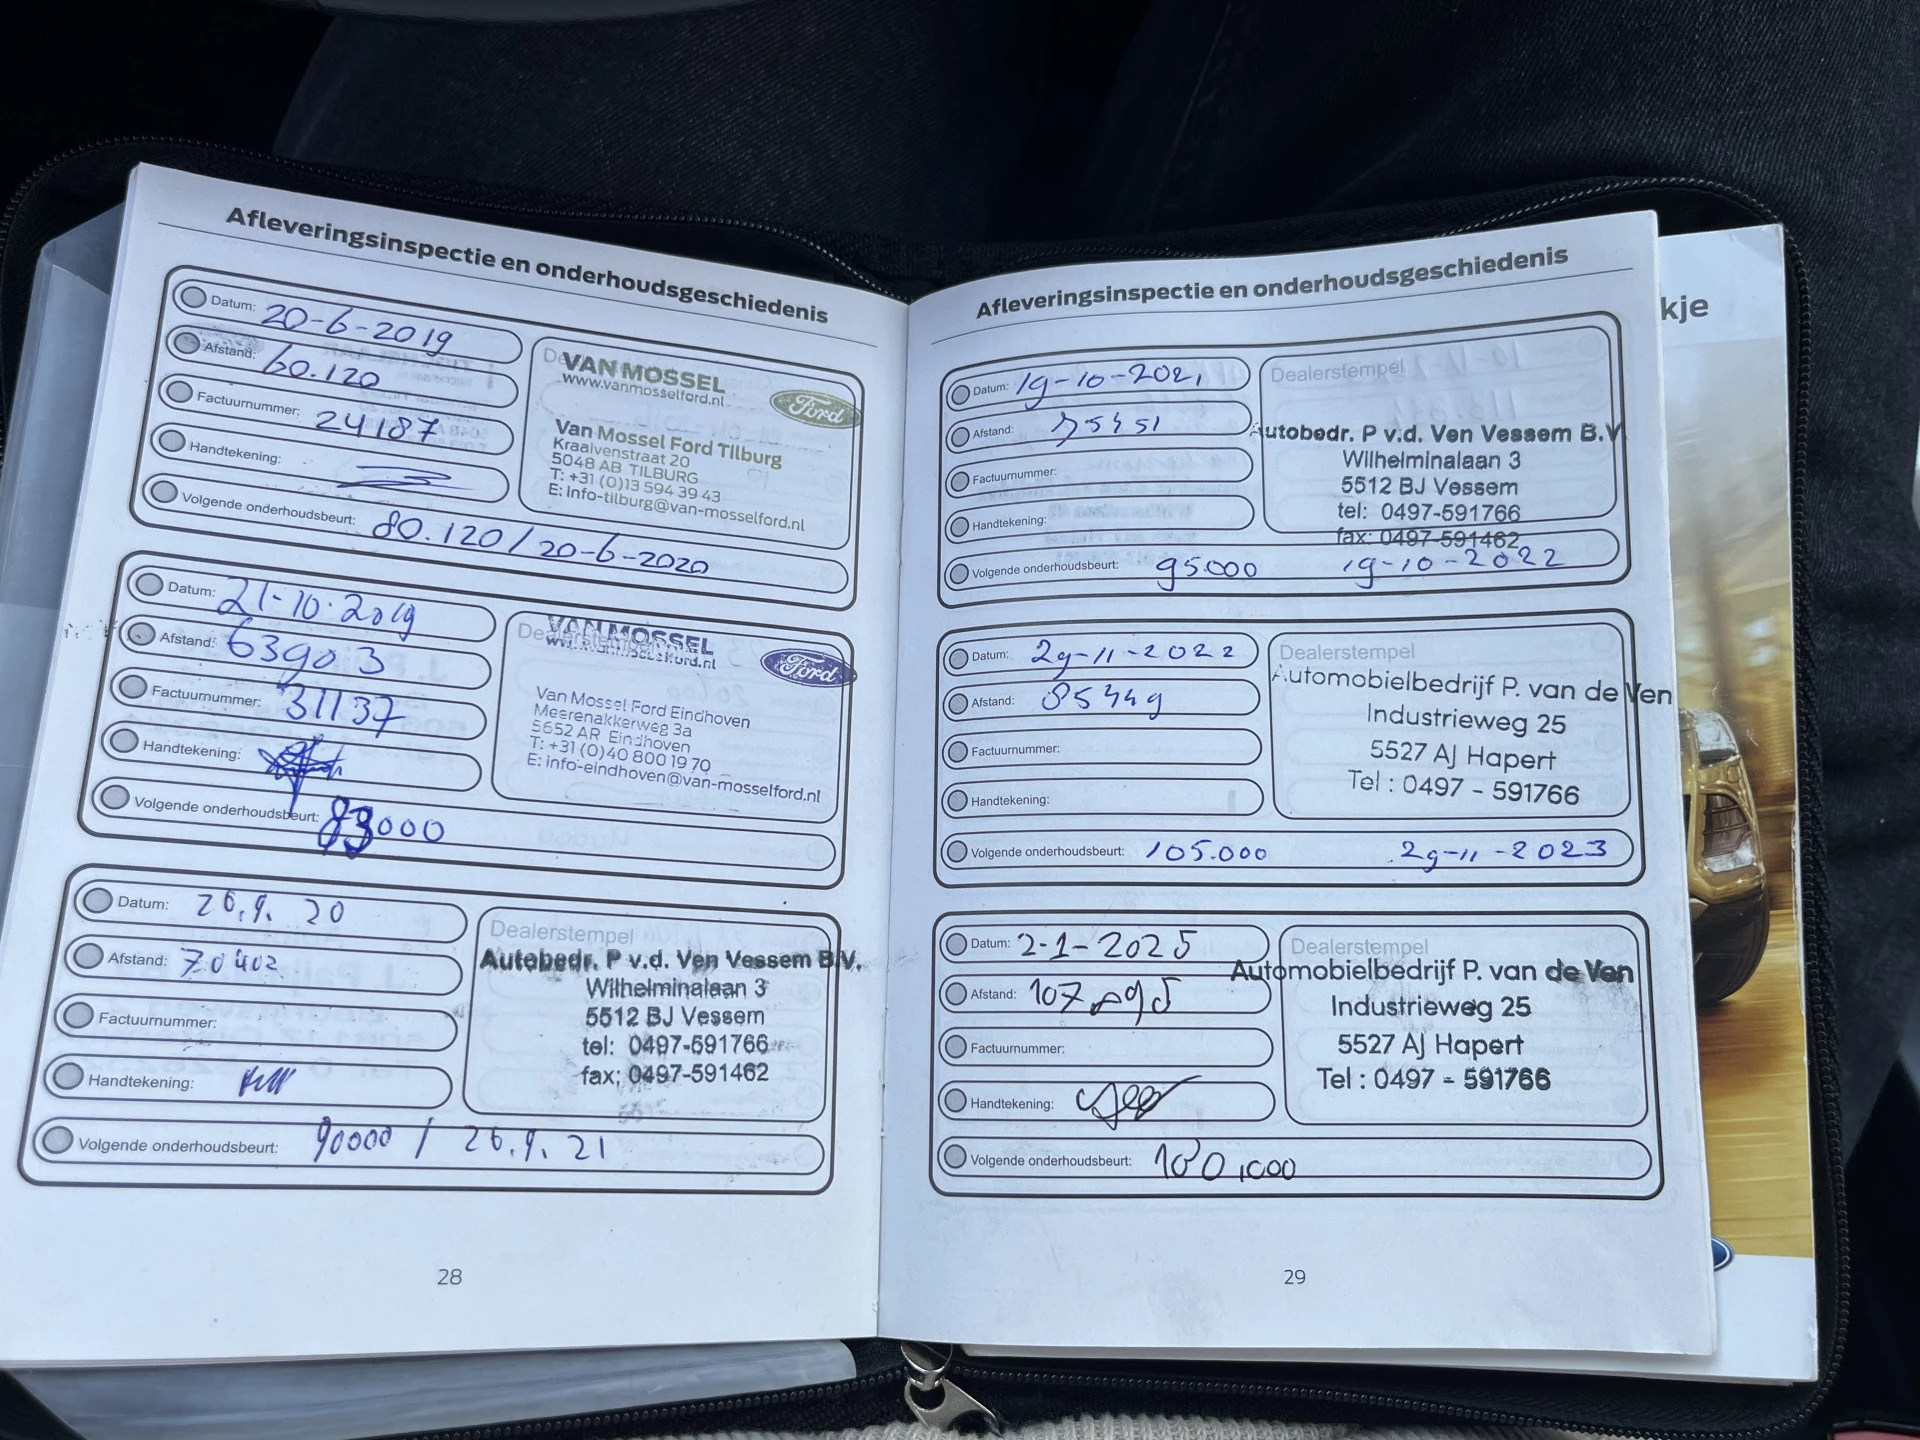 Afleveringsinspectie en onderhoudsgeschiedenis
Datum: 20-6-2019
Afstand: 60.120
Factuurnummer: 24187
Handtekening:
Volgende onderhoudsbeurt: 80.120 / 20-6-2020
VAN MOSSEL
www.vanmosselford.nl
Ford
Van Mossel Ford Tilburg
Kraaivenstraat 20
5048 AB TILBURG
T: +31 (0)13 594 39 43
E: Info-tilburg@van-mosselford.nl
Datum: 21-10-2019
Afstand: 63903
Factuurnummer: 31137
Handtekening:
Volgende onderhoudsbeurt: 83000
Dealerstempel
VAN MOSSEL
Ford
Van Mossel Ford Eindhoven
Meerenakkerweg 3a
5652 AR Eindhoven
T: +31 (0)40 800 19 70
E: info-eindhoven@van-mosselford.nl
Datum: 26.9.20
Afstand: 70402
Factuurnummer:
Handtekening:
Volgende onderhoudsbeurt: 90000 / 26.9.21
Dealerstempel
Autobedr. P v.d. Ven Vessem B.V.
Wilhelminalaan 3
5512 BJ Vessem
tel: 0497-591766
fax: 0497-591462
28
Afleveringsinspectie en onderhoudsgeschiedenis
Datum: 19-10-2021
Afstand:
Factuurnummer:
Handtekening:
Volgende onderhoudsbeurt: 95.000 19-10-2022
Dealerstempel
Autobedr. P v.d. Ven Vessem B.V.
Wilhelminalaan 3
5512 BJ Vessem
tel: 0497-591766
fax: 0497-591462
Datum: 29-11-2022
Afstand: 85449
Factuurnummer:
Handtekening:
Volgende onderhoudsbeurt: 105.000 29-11-2023
Dealerstempel
Automobielbedrijf P. van de Ven
Industrieweg 25
5527 AJ Hapert
Tel : 0497 - 591766
Datum: 2-1-2025
Afstand:
Factuurnummer:
Handtekening:
Volgende onderhoudsbeurt:
Dealerstempel
Automobielbedrijf P. van de Ven
Industrieweg 25
5527 AJ Hapert
Tel : 0497 - 591766
29
kje